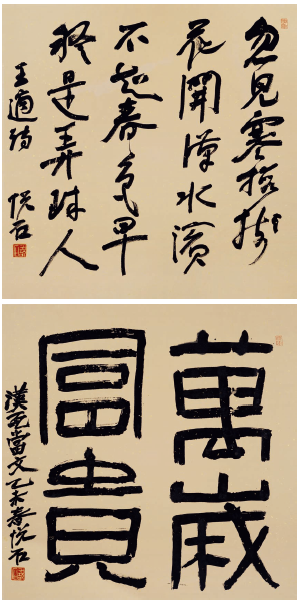 忽見寒梅樹
花開漢水濱
不知春色早
疑是弄珠人
王適詩 悦石
萬歲
富貴
漢瓦當文乙未春悦石